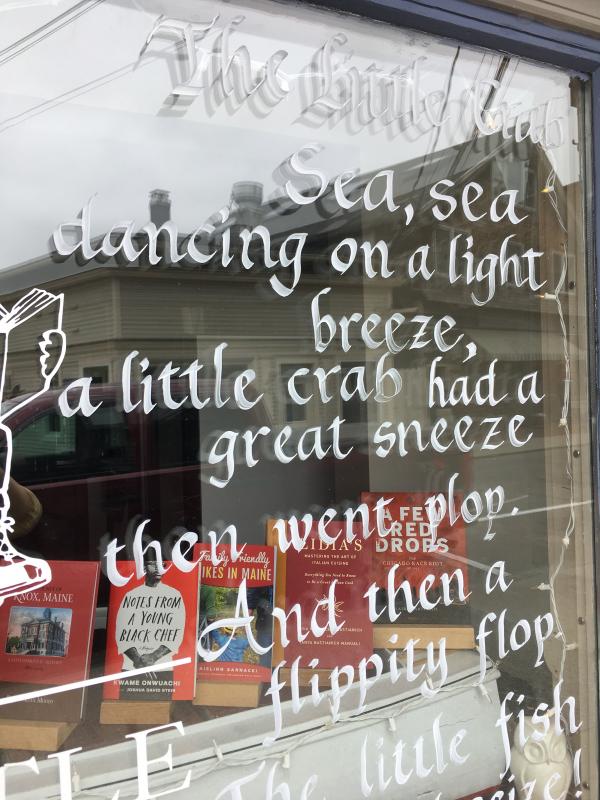 The Little Crab
Sea, sea
dancing on a light
breeze,
a little crab had a
great sneeze
then went plop.
And then a
flippity flop
The little fish
KNOX, MAINE
NOTES FROM
A YOUNG
BLACK CHEF
KWAME ONWUACHI
JOSHUA DAVID STEIN
Family Friendly
HIKES IN MAINE
AISLINN SARNACKI
LIDIA'S
MASTERING THE ART OF
ITALIAN CUISINE
Everything You Need to Know
A FEW
RED
DROPS
THE
CHICAGO RACE RIOT